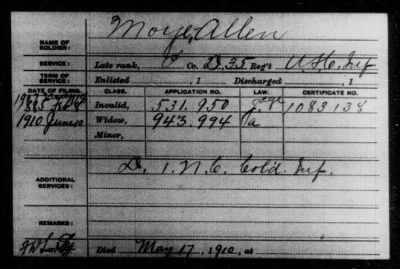 NAME OF SOLDIER: Moye, Allen
SERVICE: Late rank, Co. D, 35 Regt U.S.C. Inf
TERM OF SERVICE: Enlisted , 1 Discharged , 1
DATE OF FILING. CLASS. APPLICATION NO. LAW. CERTIFICATE NO.
Invalid, 531.950 1083138
1910 June 10 Widow, 943.994
Minor,
ADDITIONAL SERVICES: D. 1. N.C. Cold. Inf.
REMARKS:
Died May 17, 1910, at